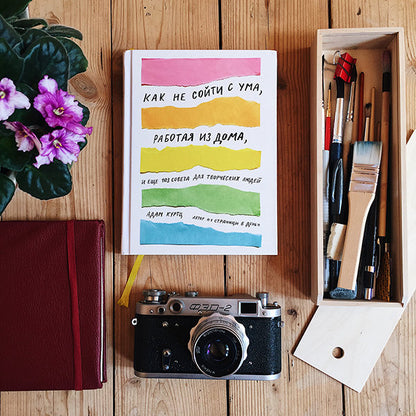 КАК НЕ СОЙТИ С УМА,
РАБОТАЯ ИЗ ДОМА,
И ЕЩЕ 103 СОВЕТА ДЛЯ ТВОРЧЕСКИХ ЛЮДЕЙ
АДАМ КУРТЦ АВТОР «1 СТРАНИЦЫ В ДЕНЬ»
ФЭД-2